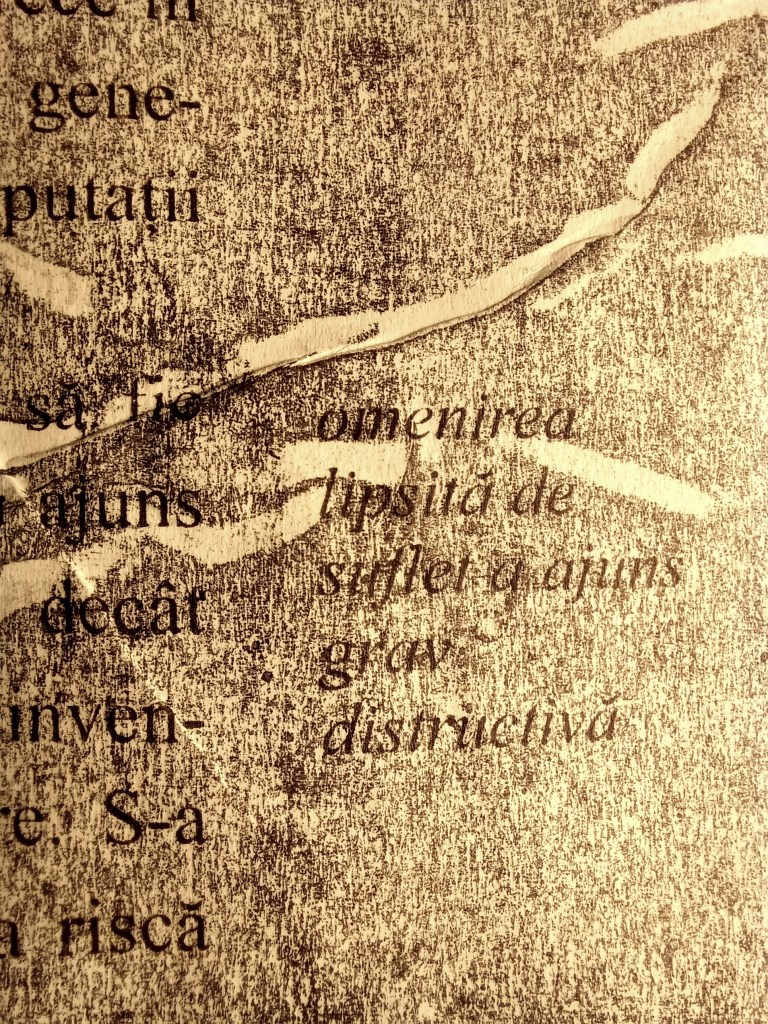 gene-
putații
să fie
ajuns
decât
inven-
re. S-a
a riscă
omenirea
lipsită de
suflet a ajuns
grav
distructivă